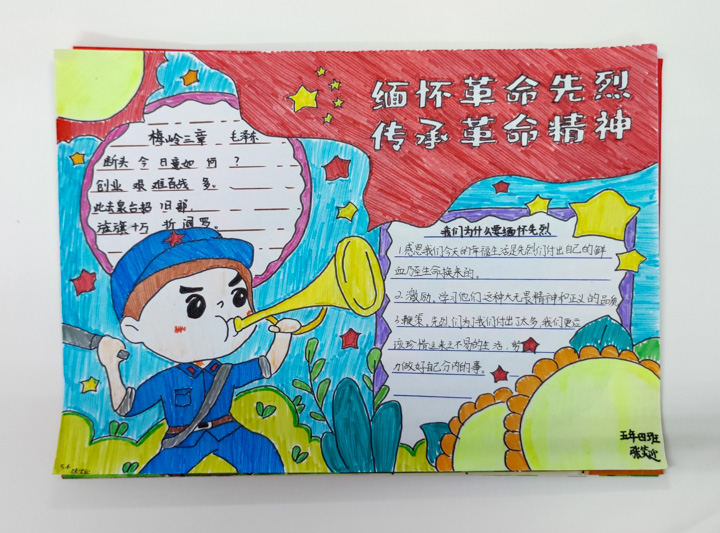 缅怀革命先烈
传承革命精神
梅岭三章 毛泽东
断头今日意如何？
创业艰难百战多。
此去泉台招旧部，
旌旗十万斩阎罗。
我们为什么要缅怀先烈
1.感恩我们今天的幸福生活是先烈们付出自己的鲜
血乃至生命换来的。
2.激励，学习他们这种大无畏精神和正义的品
3.鞭策，先烈们为了我们付出了太多，我们更应
该珍惜这来之不易的生活，努
力做好自己分内的事。
五年四班
张